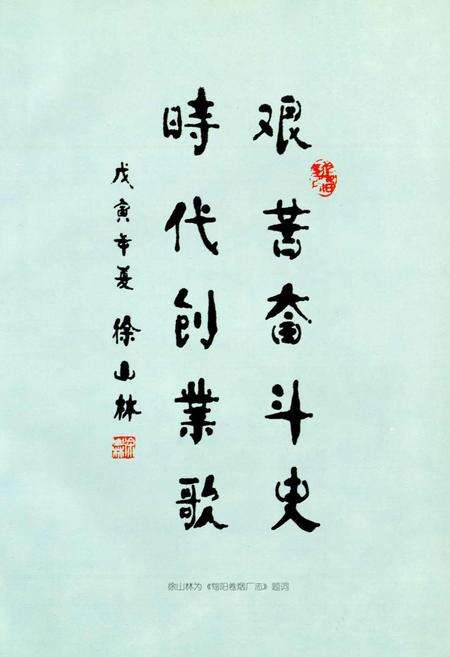 艰苦奋斗史
時代创業歌
戊寅年夏 徐山林
徐山林为《旬阳卷烟厂志》题词